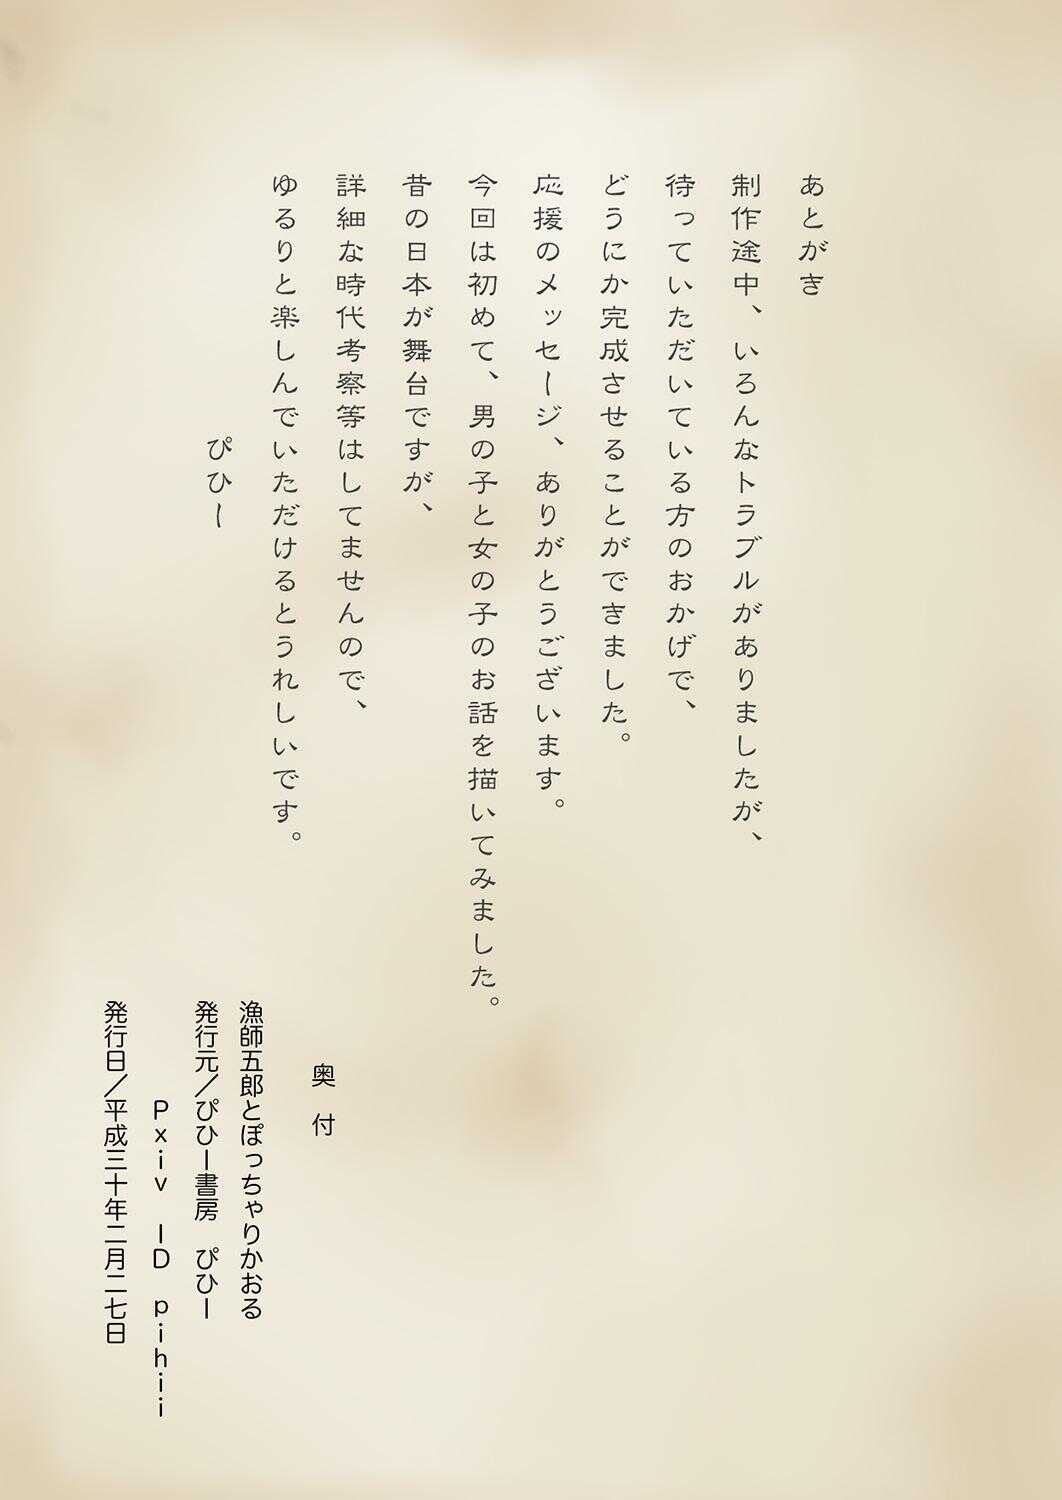 あとがき
制作途中、いろんなトラブルがありましたが、
待っていただいている方のおかげで、
どうにか完成させることができました。
応援のメッセージ、ありがとうございます。
今回は初めて、男の子と女の子のお話を描いてみました。
昔の日本が舞台ですが、
詳細な時代考察等はしてませんので、
ゆるりと楽しんでいただけるとうれしいです。
ぴひー
奥　付
漁師五郎とぽっちゃりかおる
発行元／ぴひー書房　ぴひー
Pxiv ID pihii
発行日／平成三十年二月二七日